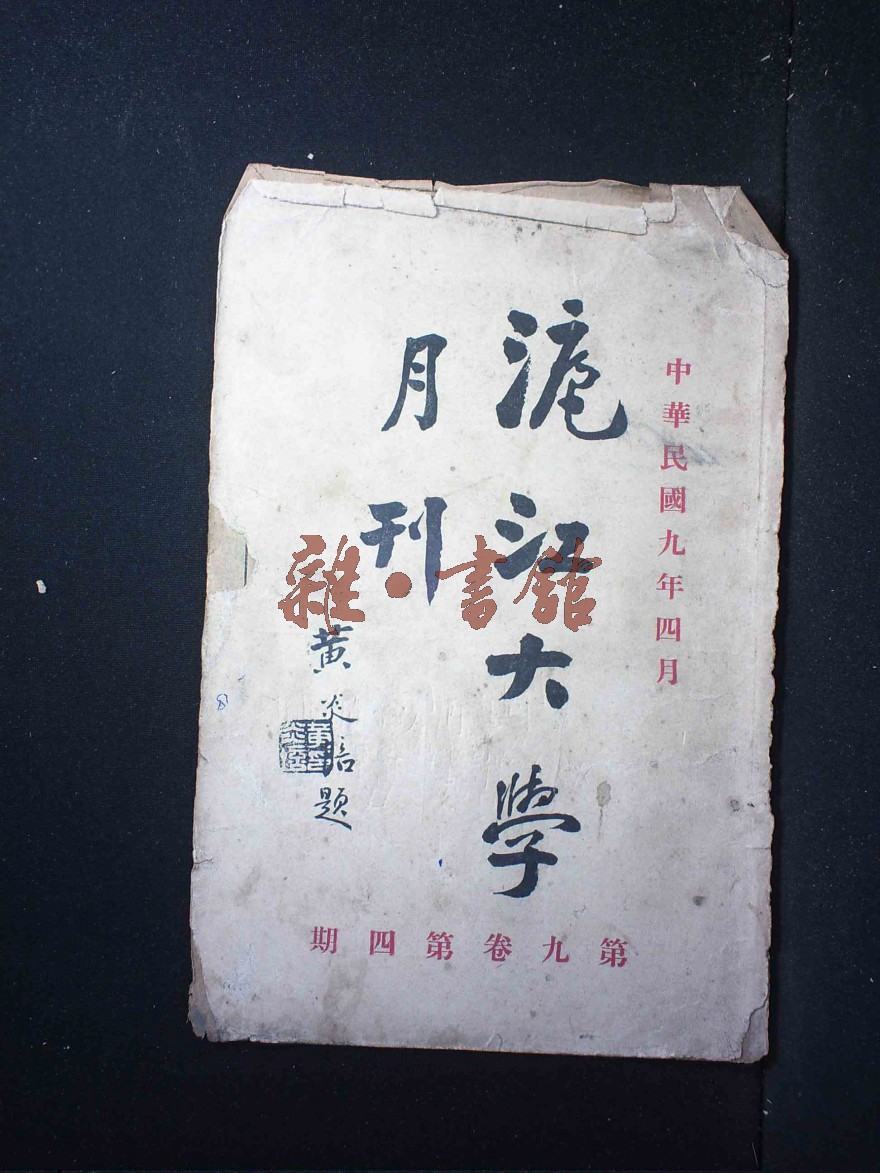 中華民國九年四月
滬江大學
月刊
黃炎培題
第九卷第四期
雜·書館